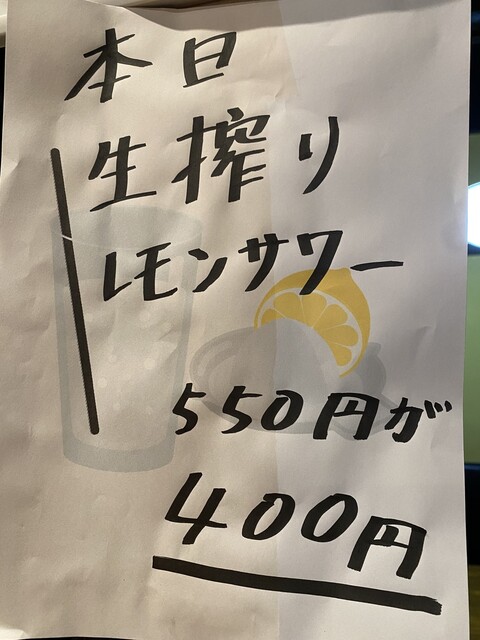 本日
生搾り
レモンサワー
550円が
400円